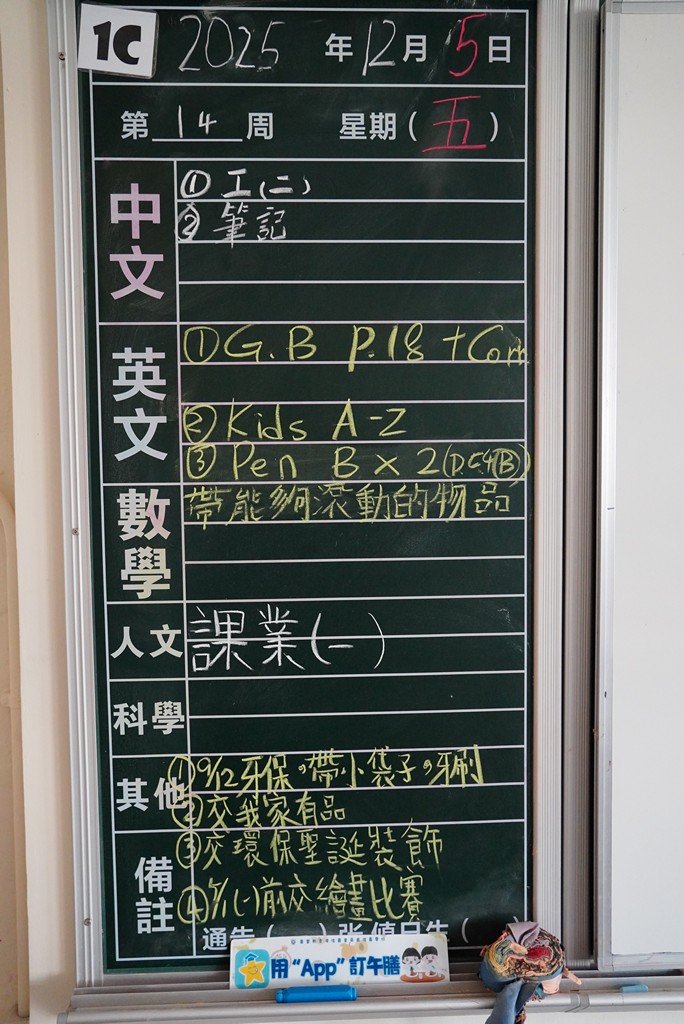 1C 2025 年 12 月 5 日
第 14 周 星期(五)
中文
①工(二)
②筆記
英文
①G.B P.18 + Corr
②Kids A-Z
③Pen B x 2
數學
帶能夠滾動的物品
人文
課業(一)
科學
其他
①9/12牙保,帶小袋子,牙刷
②交我家有品
備註
③交環保聖誕裝飾
前交繪畫比賽
通告( )張 值日生( )
用“App”訂午膳